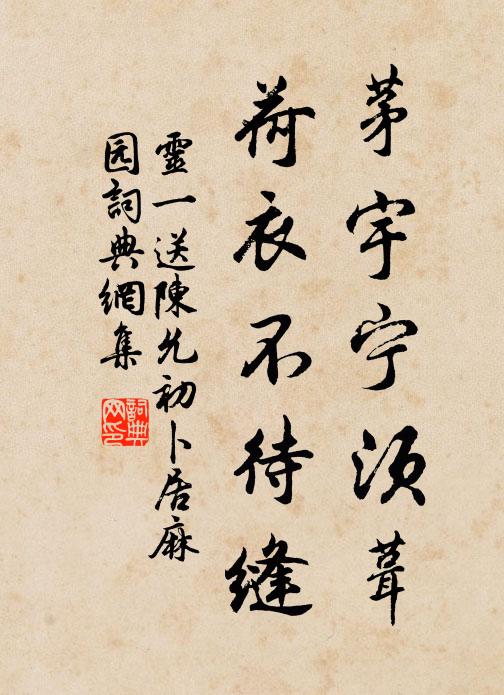 茅宇宁须葺
荷衣不待縫
靈一送陳允初卜居麻
园詞典網集
詞典网印